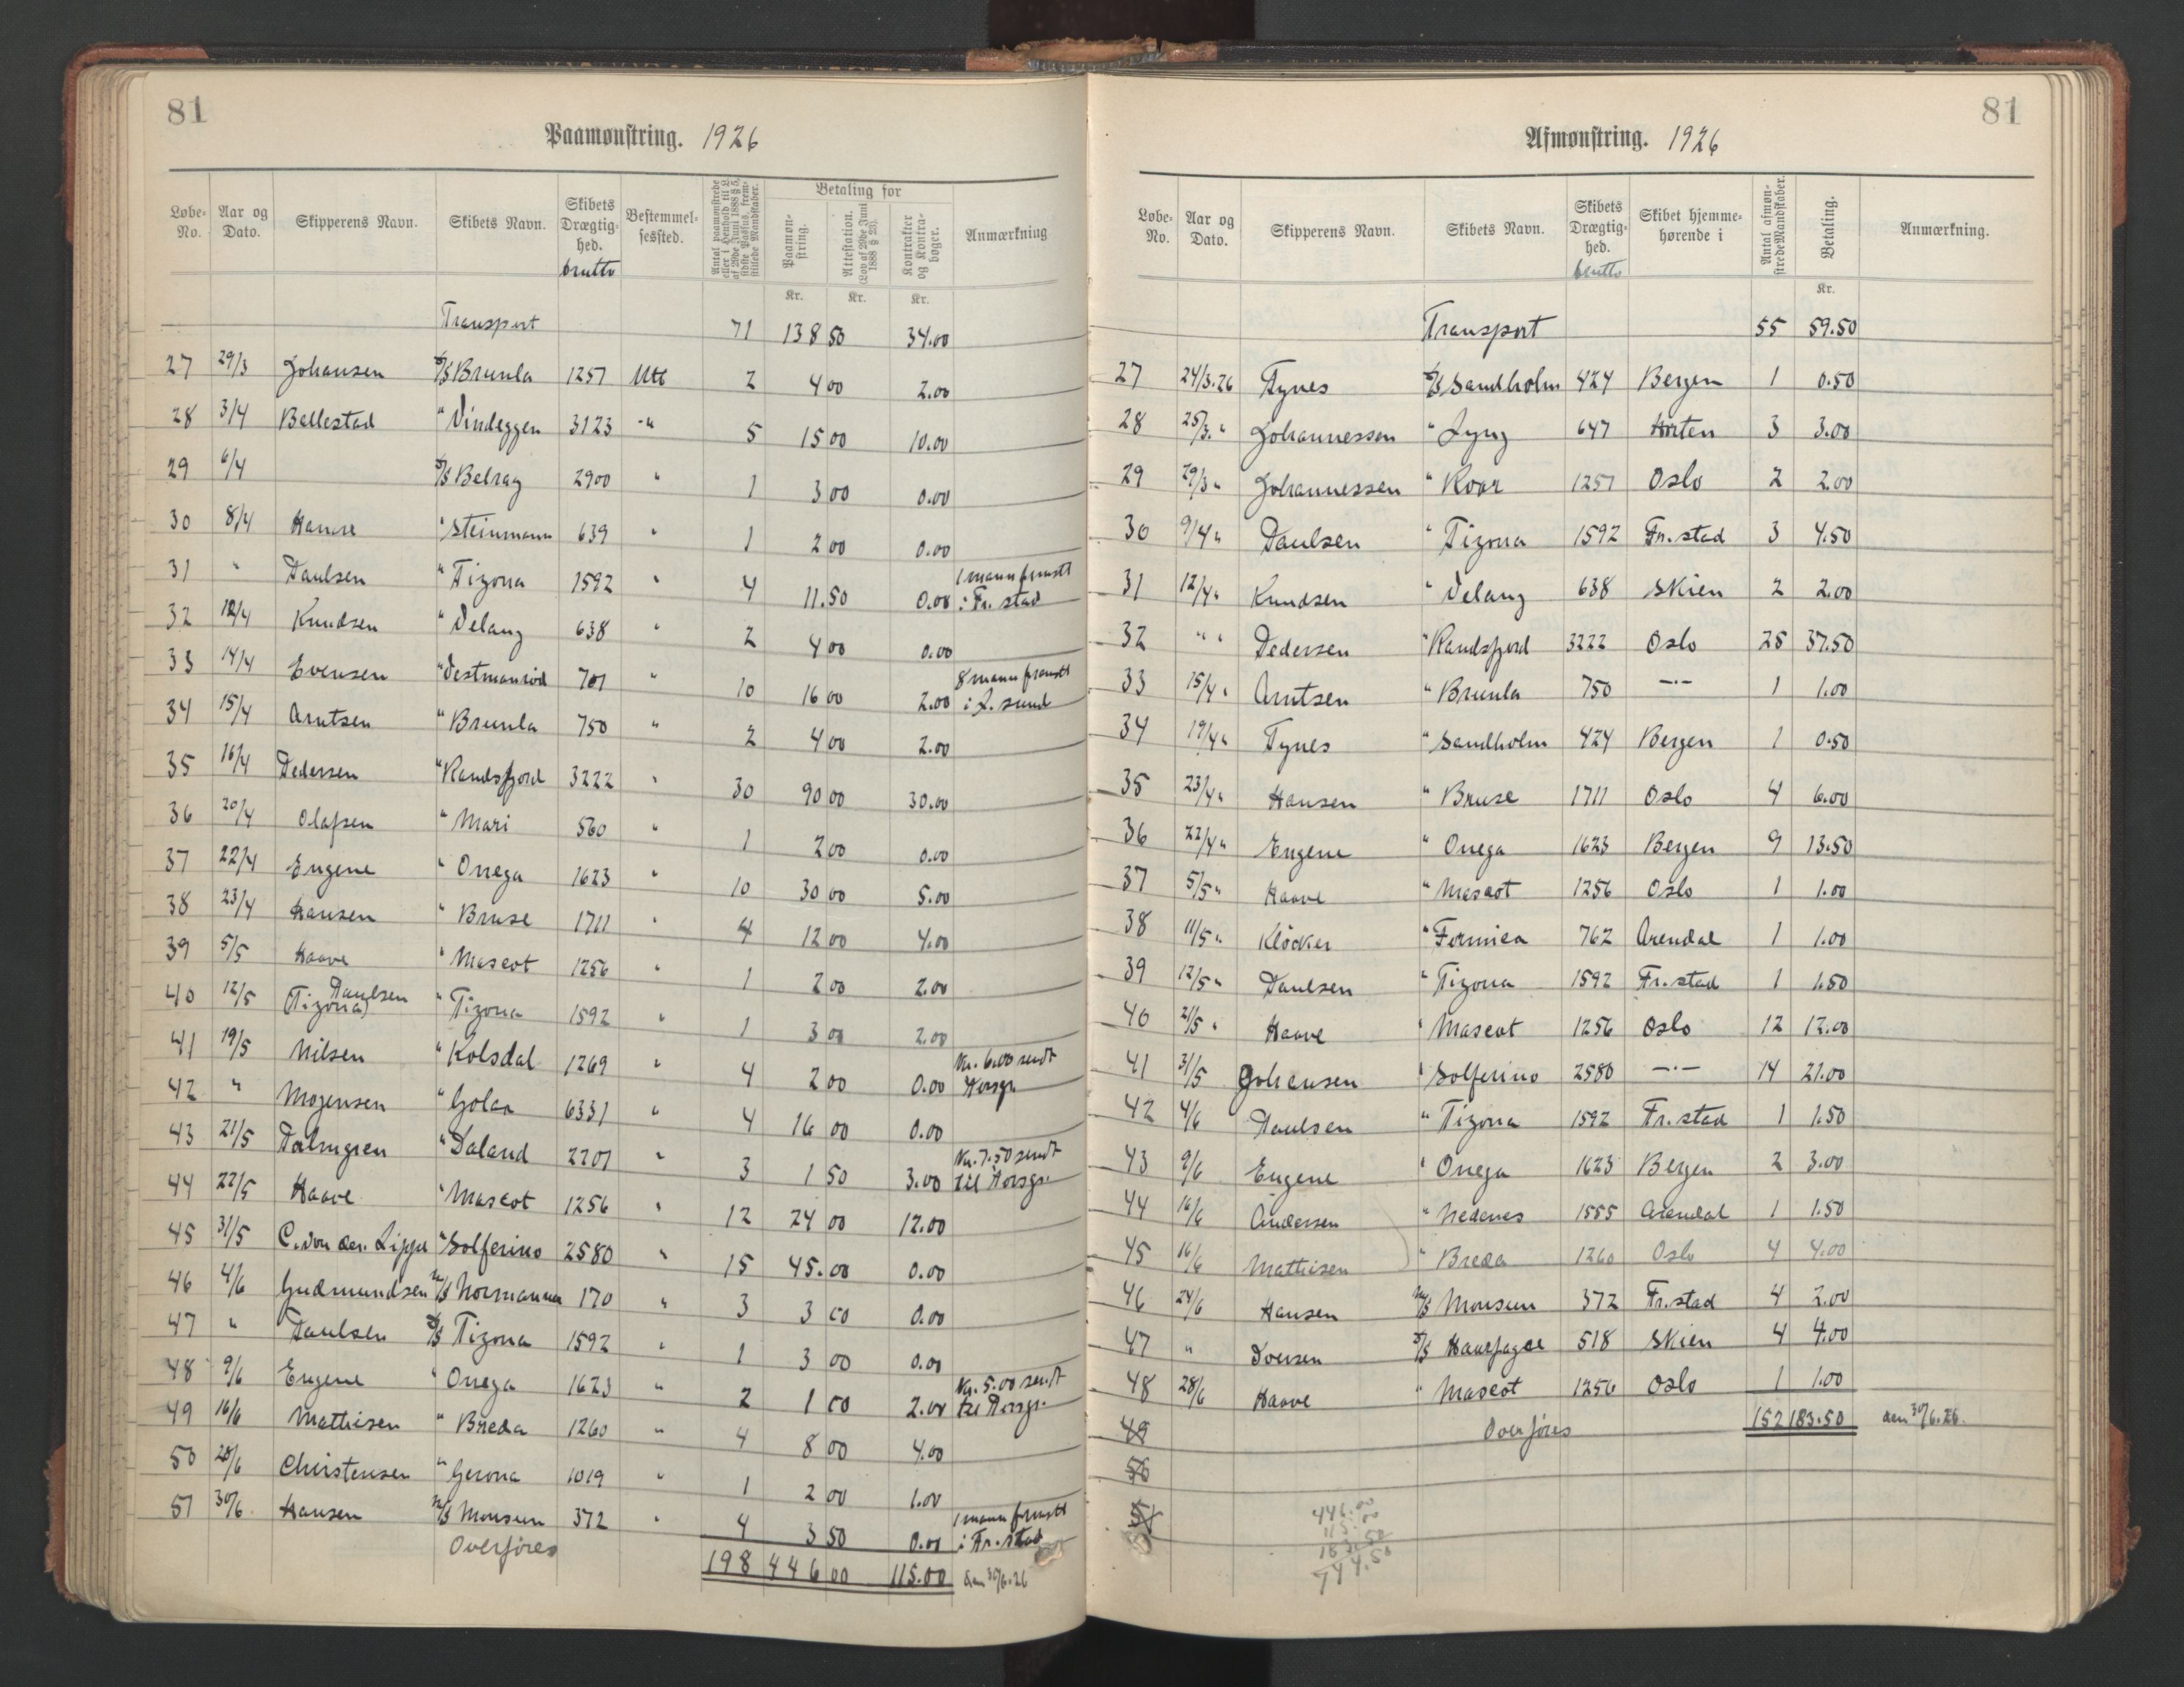 81
Paamønstring. 1926
Løbe-No. | Aar og Dato. | Skipperens Navn. | Skibets Navn. | Skibets Drægtighed. brutto | Bestemmelsessted. | Antal paamønstrede eller i Henhold til L. af 29de Juni 1888 § 5, sidste Passus, fremstillede Mandskaber. | Betaling for | Paamønstring. | Attestation. (Lov af 29de Juni 1888 § 23). | Kontrakter og Kontrabøger. | Anmærkning
Kr. | Kr. | Kr.
Transport | 71 | 138 50 | 34.00
27 | 29/3 | Johansen | S/S Brunla | 1257 | Utl | 2 | 4 00 | 2.00
28 | 3/4 | Bellestad | " Vindeggen | 3123 | -" | 5 | 15 00 | 10.00
29 | 6/4 | S/S Belray | 2900 | " | 1 | 3 00 | 0.00
30 | 8/4 | Hamre | " Steinmann | 639 | " | 1 | 2 00 | 0.00
31 | " | Paulsen | " Tizona | 1592 | " | 4 | 11.50 | 0.00 | 1 mann fremst i Fr. stad
32 | 12/4 | Knudsen | " Velang | 638 | " | 2 | 4 00 | 0.00
33 | 14/4 | Evensen | " Vestmanrød | 701 | " | 10 | 16 00 | 2.00 | 8 mann fremst i L. sund
34 | 15/4 | Arntsen | " Brunla | 750 | " | 2 | 4 00 | 2.00
35 | 16/4 | Pedersen | " Randsfjord | 3222 | " | 30 | 90 00 | 30.00
36 | 20/4 | Olafsen | " Mari | 560 | " | 1 | 2 00 | 0.00
37 | 22/4 | Eugene | " Onega | 1623 | " | 10 | 30 00 | 5.00
38 | 23/4 | Hansen | " Bruse | 1711 | " | 4 | 12 00 | 4.00
39 | 5/5 | Haave | " Mascot | 1256 | " | 1 | 2 00 | 2.00
40 | 12/5 | (Tizona) Paulsen | " Tizona | 1592 | " | 1 | 3 00 | 2.00
41 | 19/5 | Nilsen | " Kolsdal | 1269 | " | 4 | 2 00 | 0.00 | Kr. 6.00 sendt Porsgr.
42 | " | Mogensen | " Golaa | 6331 | " | 4 | 16 00 | 0.00
43 | 21/5 | Palmgren | " Daland | 2201 | " | 3 | 1 50 | 3.00 | Kr. 7.50 sendt til Porsgr.
44 | 22/5 | Haave | " Mascot | 1256 | " | 12 | 24 00 | 12.00
45 | 31/5 | C. von der. Lippe | " Solferino | 2580 | " | 15 | 45.00 | 0.00
46 | 4/6 | Gudmundsen | M/S Normanna | 170 | " | 3 | 3 00 | 0.00
47 | " | Paulsen | S/S Tizona | 1592 | " | 1 | 3 00 | 0.00
48 | 9/6 | Eugene | " Onega | 1623 | " | 2 | 1 00 | 2.00 | Kr. 5.00 sendt til Porsgr.
49 | 16/6 | Mathisen | " Breda | 1260 | " | 4 | 8 00 | 4.00
50 | 28/6 | Christensen | " Gerona | 1019 | " | 1 | 2 00 | 1.00
51 | 30/6 | Hansen | M/S Monsun | 372 | " | 4 | 3 50 | 0.00 | 1 mann fremst i Fr. stad
Overføres | 198 | 446 00 | 115.00 | den 30/6.26
81
Afmønstring. 1926
Løbe-No. | Aar og Dato. | Skipperens Navn. | Skibets Navn. | Skibets Drægtighed. brutto | Skibet hjemmehørende i | Antal afmønstrede Mandskaber. | Betaling. | Anmærkning.
Kr.
Transport | 55 | 59.50
27 | 24/3.26 | Tynes | S/S Sandholm | 424 | Bergen | 1 | 0.50
28 | 25/3. " | Johannessen | " Lyng | 647 | Horten | 3 | 3.00
29 | 29/3 " | Johannessen | " Roar | 1257 | Oslo | 2 | 2.00
30 | 9/4 " | Paulsen | " Tizona | 1592 | Fr. stad | 3 | 4.50
31 | 12/4 " | Knudsen | " Velang | 638 | Skien | 2 | 2.00
32 | " " | Pedersen | " Randsfjord | 3222 | Oslo | 25 | 37.50
33 | 15/4 " | Arntsen | " Brunla | 750 | -"- | 1 | 1.00
34 | 19/4 " | Tynes | " Sandholm | 424 | Bergen | 1 | 0.50
35 | 23/4 " | Hansen | " Bruse | 1711 | Oslo | 4 | 6.00
36 | 22/4 " | Eugene | " Onega | 1623 | Bergen | 9 | 13.50
37 | 5/5 " | Haave | " Mascot | 1256 | Oslo | 1 | 1.00
38 | 11/5 " | Klöcker | " Formica | 762 | Arendal | 1 | 1.00
39 | 12/5 " | Paulsen | " Tizona | 1592 | Fr. stad | 1 | 1.50
40 | 21/5 " | Haave | " Mascot | 1256 | Oslo | 12 | 12.00
41 | 31/5 | Johansen | " Solferino | 2580 | -"- | 14 | 21.00
42 | 4/6 | Paulsen | " Tizona | 1592 | Fr. stad | 1 | 1.50
43 | 9/6 | Eugene | " Onega | 1623 | Bergen | 2 | 3.00
44 | 16/6 | Andersen | " Nedenes | 1555 | Arendal | 1 | 1.50
45 | 16/6 | Mathisen | " Breda | 1260 | Oslo | 4 | 4.00
46 | 24/6 | Hansen | M/S Monsun | 372 | Fr. stad | 4 | 2.00
47 | " | Iversen | S/S Haarfagre | 518 | Skien | 4 | 4.00
48 | 28/6 | Haave | " Mascot | 1256 | Oslo | 1 | 1.00
49 | Overføres | 152 | 183.50 | den 30/6.26.
50
51
446.00
115.00
183.50
744.50